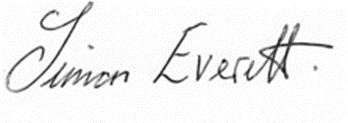 Simon Everett.